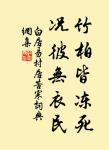 竹柏皆凍死
況彼無衣民
白居易村居苦寒詞典
網集